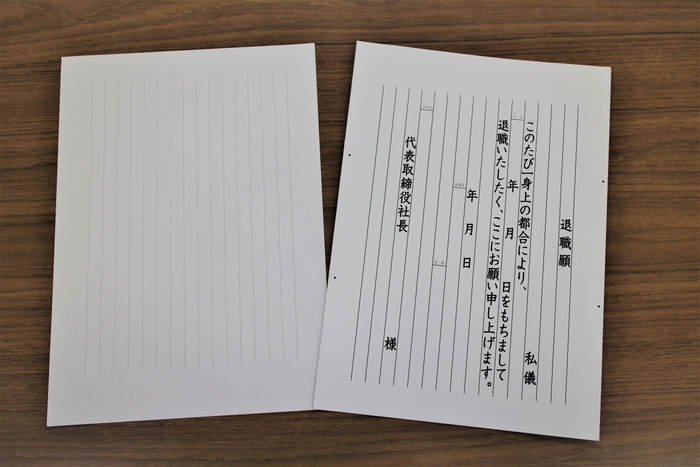 退職願
私儀
このたび一身上の都合により、
年　月　日をもちまして
退職いたしたく、ここにお願い申し上げます。
年　月　日
代表取締役社長
様